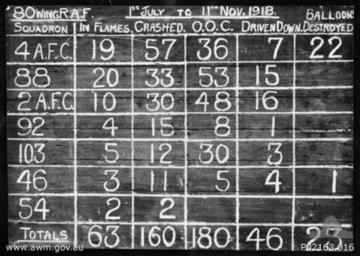 80 WING R.A.F. 1ST JULY TO 11TH NOV. 1918.
SQUADRON IN FLAMES. CRASHED. O.O.C. DRIVEN DOWN. BALLOON DESTROYED
4 A.F.C. 19 57 36 7 22
88 20 33 53 15
2 A.F.C. 10 30 48 16
92 4 15 8 1
103 5 12 30 3
46 3 11 5 4 1
54 2 2
TOTALS 63 160 180 46
www.awm.gov.au P02163.016